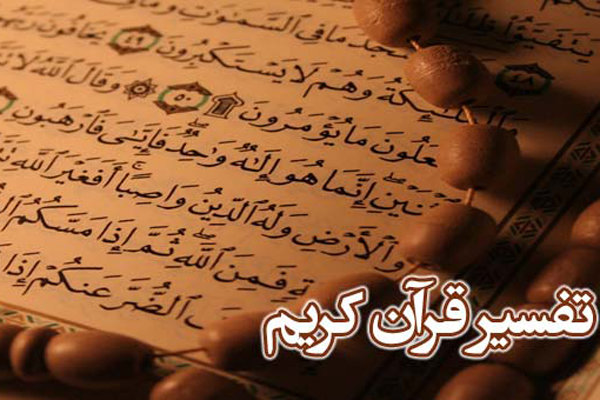 يَتَفَيَّؤُا۟ ظِلَٰلُهُ
يَسْجُدُ مَا فِى ٱلسَّمَٰوَٰتِ وَمَا فِى
ٱلْمَلَٰٓئِكَةُ وَهُمْ لَا يَسْتَكْبِرُونَ ٤٩ يَخَافُونَ
يَفْعَلُونَ مَا يُؤْمَرُونَ ۩ ٥٠ ۞ وَقَالَ ٱللَّهُ لَا
إِنَّمَا هُوَ إِلَٰهٌ وَٰحِدٌ فَإِيَّٰىَ فَٱرْهَبُونِ
وَٱلْأَرْضِ وَلَهُ ٱلدِّينُ وَاصِبًا أَفَغَيْرَ ٱللَّهِ
فَمِنَ ٱللَّهِ ثُمَّ إِذَا مَسَّكُمُ
ٱلضُّرَّ عَنكُمْ إِذَا
تفسیر قرآن کریم